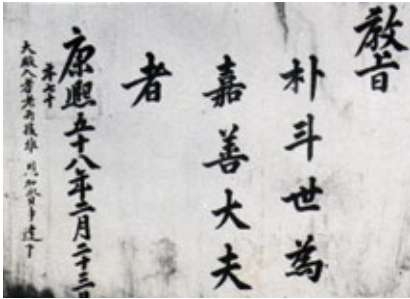 敎旨
朴斗世為
嘉善大夫
者
康熙五十八年二月二十三日
年七十